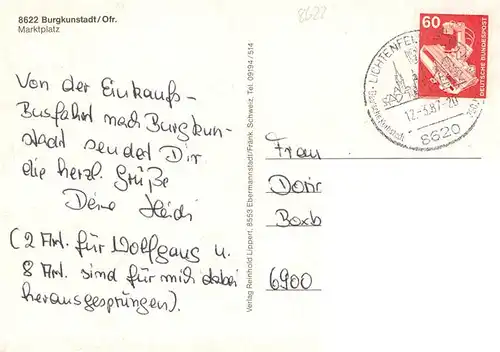 8622 Burgkunstadt/Ofr.
Marktplatz
8622
Von der Einkaufs-
Busfahrt nach Burgkun-
stadt sendet Dir
die herzl. Grüße
Deine Heidi
(2 Art. für Wolfgang u.
8 Art. sind für mich dabei
herausgesprungen).
Verlag Reinhold Lippert, 8553 Ebermannstadt/Fränk. Schweiz, Tel. 09194/514
60
DEUTSCHE BUNDESPOST
LICHTENFEL
12.-3.87-20
8620
Frau
Doris
Boxb
6900